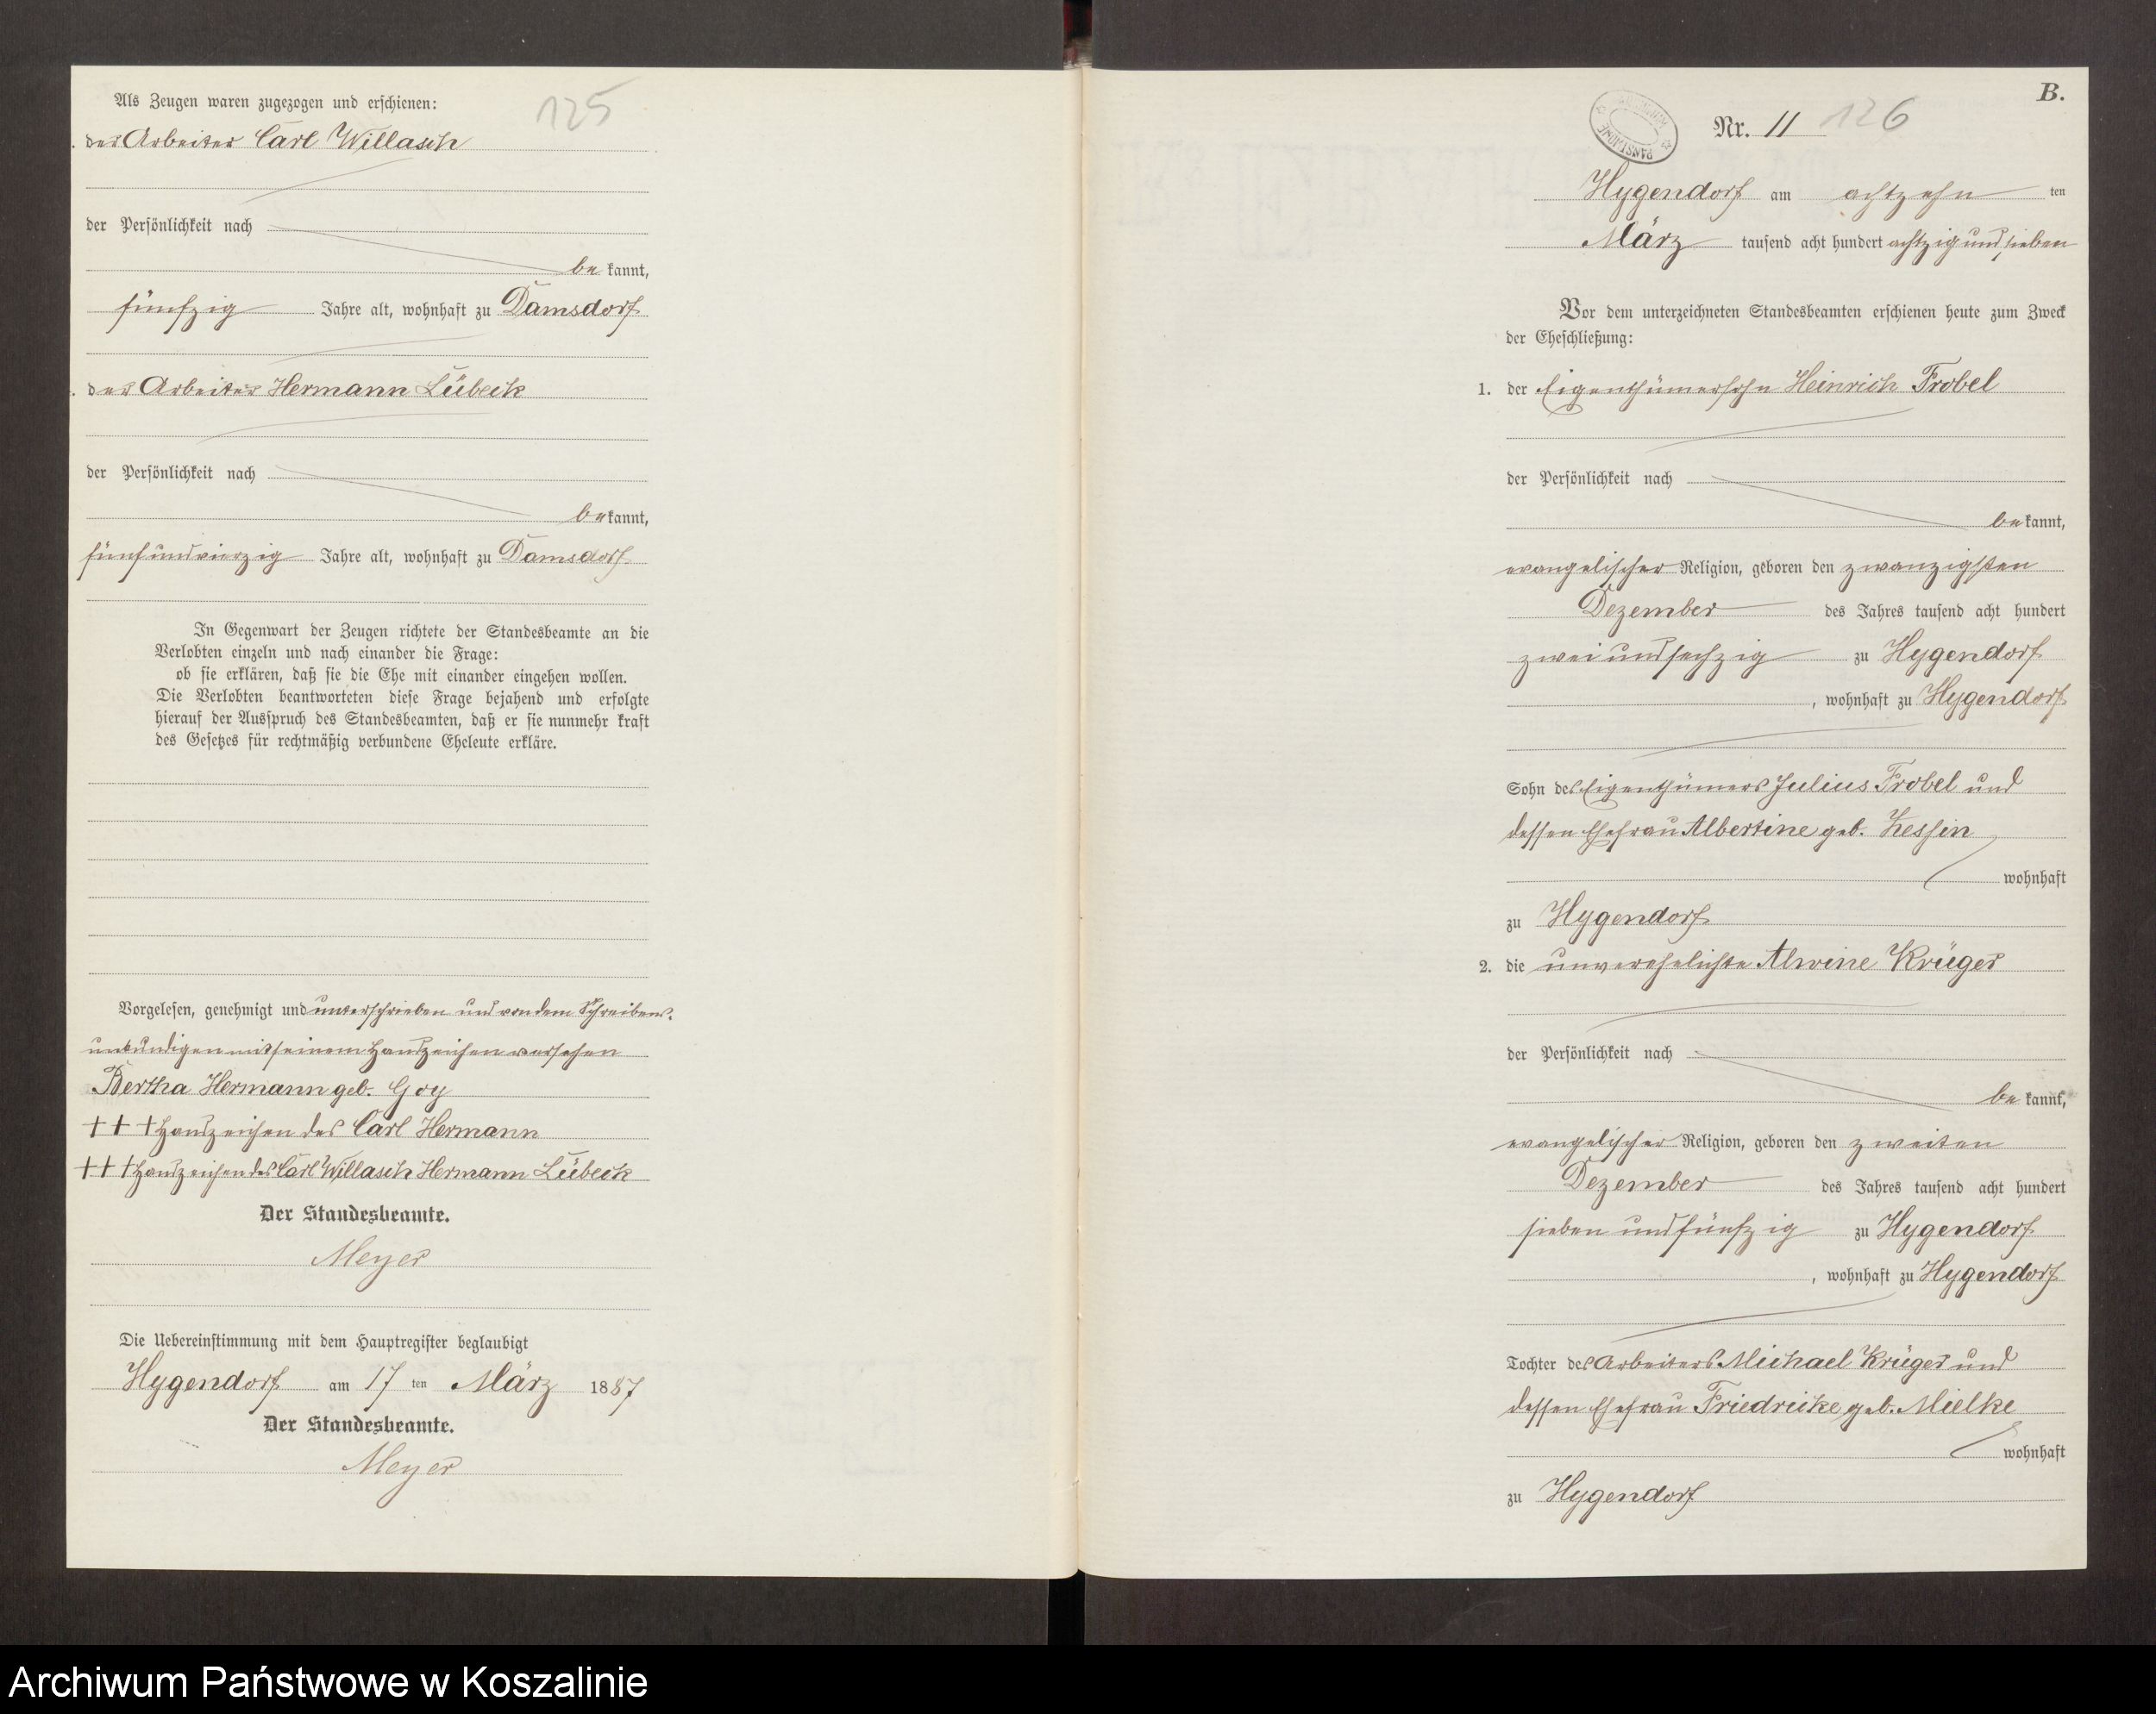 125
Als Zeugen waren zugezogen und erschienen:
der Arbeiter Carl Willasch
der Persönlichkeit nach
be kannt,
fünfzig Jahre alt, wohnhaft zu Damsdorf
der Arbeiter Hermann Lübeck
der Persönlichkeit nach
be kannt,
fünfundvierzig Jahre alt, wohnhaft zu Damsdorf
In Gegenwart der Zeugen richtete der Standesbeamte an die
Verlobten einzeln und nach einander die Frage:
ob sie erklären, daß sie die Ehe mit einander eingehen wollen.
Die Verlobten beantworteten diese Frage bejahend und erfolgte
hierauf der Ausspruch des Standesbeamten, daß er sie nunmehr kraft
des Gesetzes für rechtmäßig verbundene Eheleute erkläre.
Vorgelesen, genehmigt und unterschrieben und von dem Schreibens-
unkundigen mit seinem Handzeichen versehen
Bertha Hermann geb. Goy
+++ Handzeichen des Carl Hermann
+++ Handzeichen des Carl Willasch Hermann Lübeck
Der Standesbeamte.
Meyer
Die Uebereinstimmung mit dem Hauptregister beglaubigt
Hygendorf am 17 ten März 1887
Der Standesbeamte.
Meyer
B.
Nr. 11 126
Hygendorf am achtzehn ten
März tausend acht hundert achtzig und sieben
Vor dem unterzeichneten Standesbeamten erschienen heute zum Zweck
der Eheschließung:
1. der Eigenthümersohn Heinrich Frobel
der Persönlichkeit nach
be kannt,
evangelischer Religion, geboren den zwanzigsten
Dezember des Jahres tausend acht hundert
zwei und sechzig zu Hygendorf
, wohnhaft zu Hygendorf
Sohn des Eigenthümers Julius Frobel und
dessen Ehefrau Albertine geb. Kessin
wohnhaft
zu Hygendorf
2. die unverehelichte Alwine Krüger
der Persönlichkeit nach
be kannt,
evangelischer Religion, geboren den zweiten
Dezember des Jahres tausend acht hundert
sieben und fünfzig zu Hygendorf
, wohnhaft zu Hygendorf
Tochter des Arbeiters Michael Krüger und
dessen Ehefrau Friedricke geb. Mielke
wohnhaft
zu Hygendorf
Archiwum Państwowe w Koszalinie